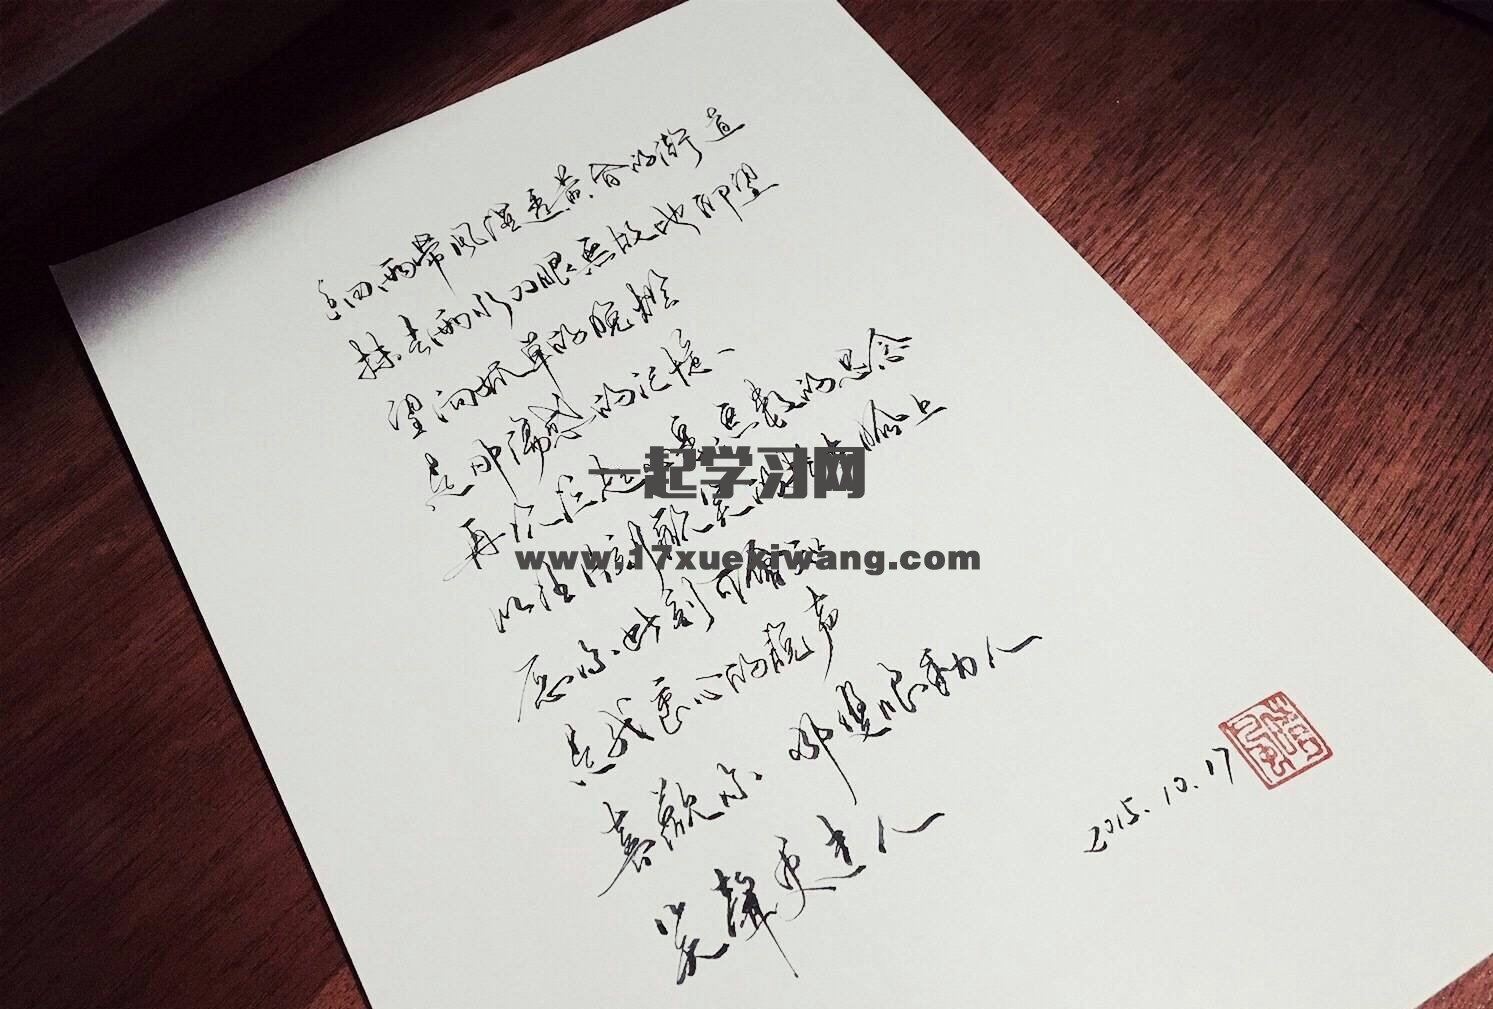 细雨带风湿透黄昏的街道
抹去雨水双眼無故地仰望
望向孤单的晚灯
是那傷感的记憶
再次泛起無数的思念
以往片刻歡笑脸上
愿你此刻可會知
是我衷心的说声
喜歡你 那雙眼動人
笑聲更迷人
2015.10.17
一起学习网
www.17xuekiwang.com